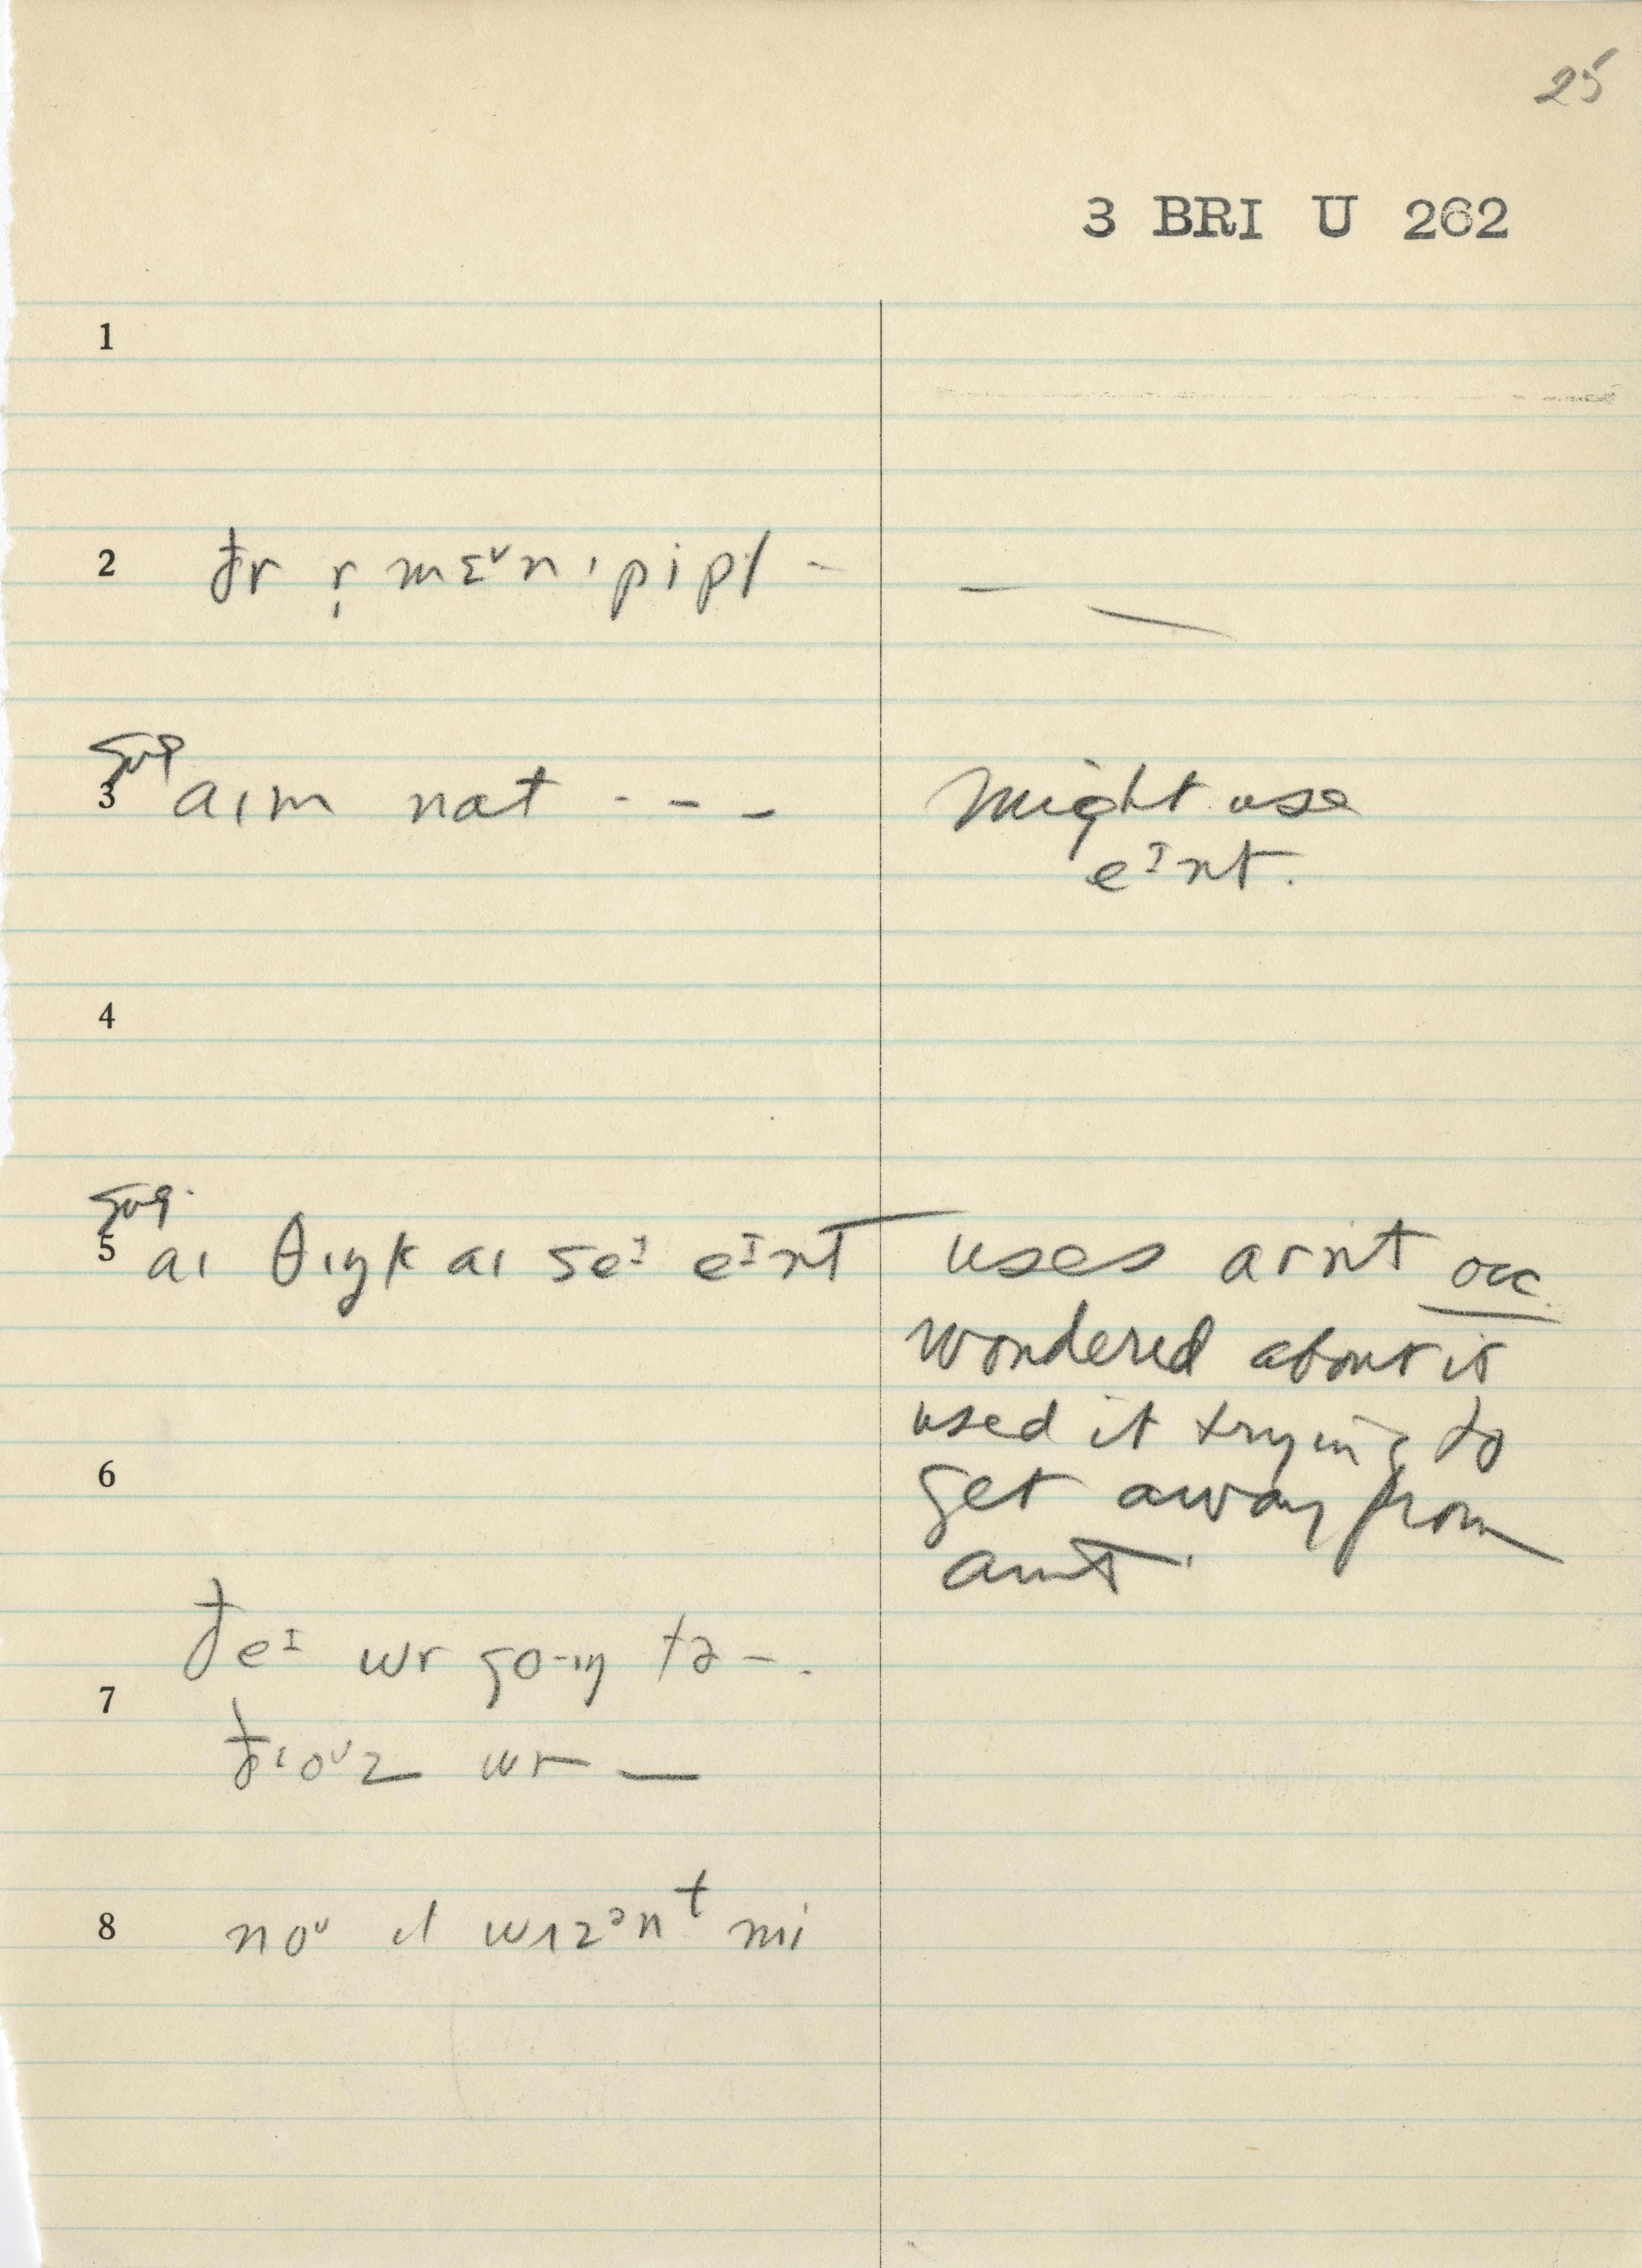 25
3 BRI U 262
1
2 ðr r̩ mɛᵛn ɪ pipl –
sug
3 aɪm nat - - - might use
eᴵnt.
4
sug.
5 aɪ θɪŋk aɪ seᴵ eᴵnt uses arnt occ.
wondered about it
used it trying to
6 get away from
aint.
ðeᴵ wr go-ɪŋ tə – .
7
ðɪoᵁz wr —
8 noᵁ ɪt wɪzᵊnᵗ mi